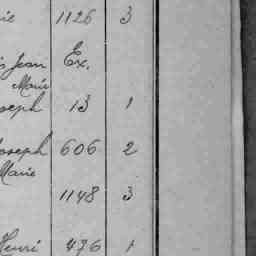 ie 1126 3
Jean Ex.
Marie
oseph 13 1
oseph 606 2
Marie
1148 3
Henri 476 1